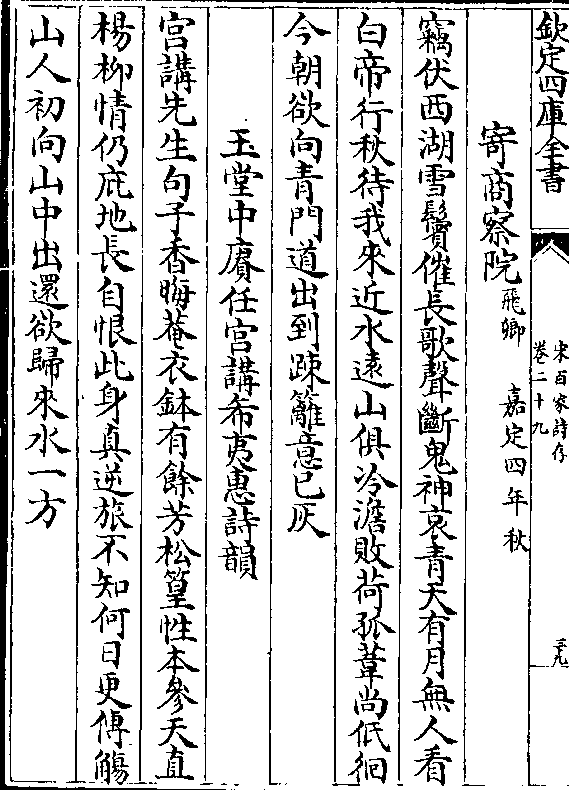 欽定四庫全書
宋百家詩存
卷二十九
三九
寄商察院飛卿 嘉定四年秋
竊伏西湖雪鬢催長歌聲斷鬼神哀青天有月無人看
白帝行秋待我來近水遠山俱冷澹敗荷孤葦尚低徊
今朝欲向青門道出到疎籬意已灰
玉堂中賡任宮講希夷惠詩韻
宮講先生句子香晦菴衣鉢有餘芳松篁性本參天直
楊柳情仍庇地長自恨此身真逆旅不知何日更傳觴
山人初向山中出還欲歸來水一方